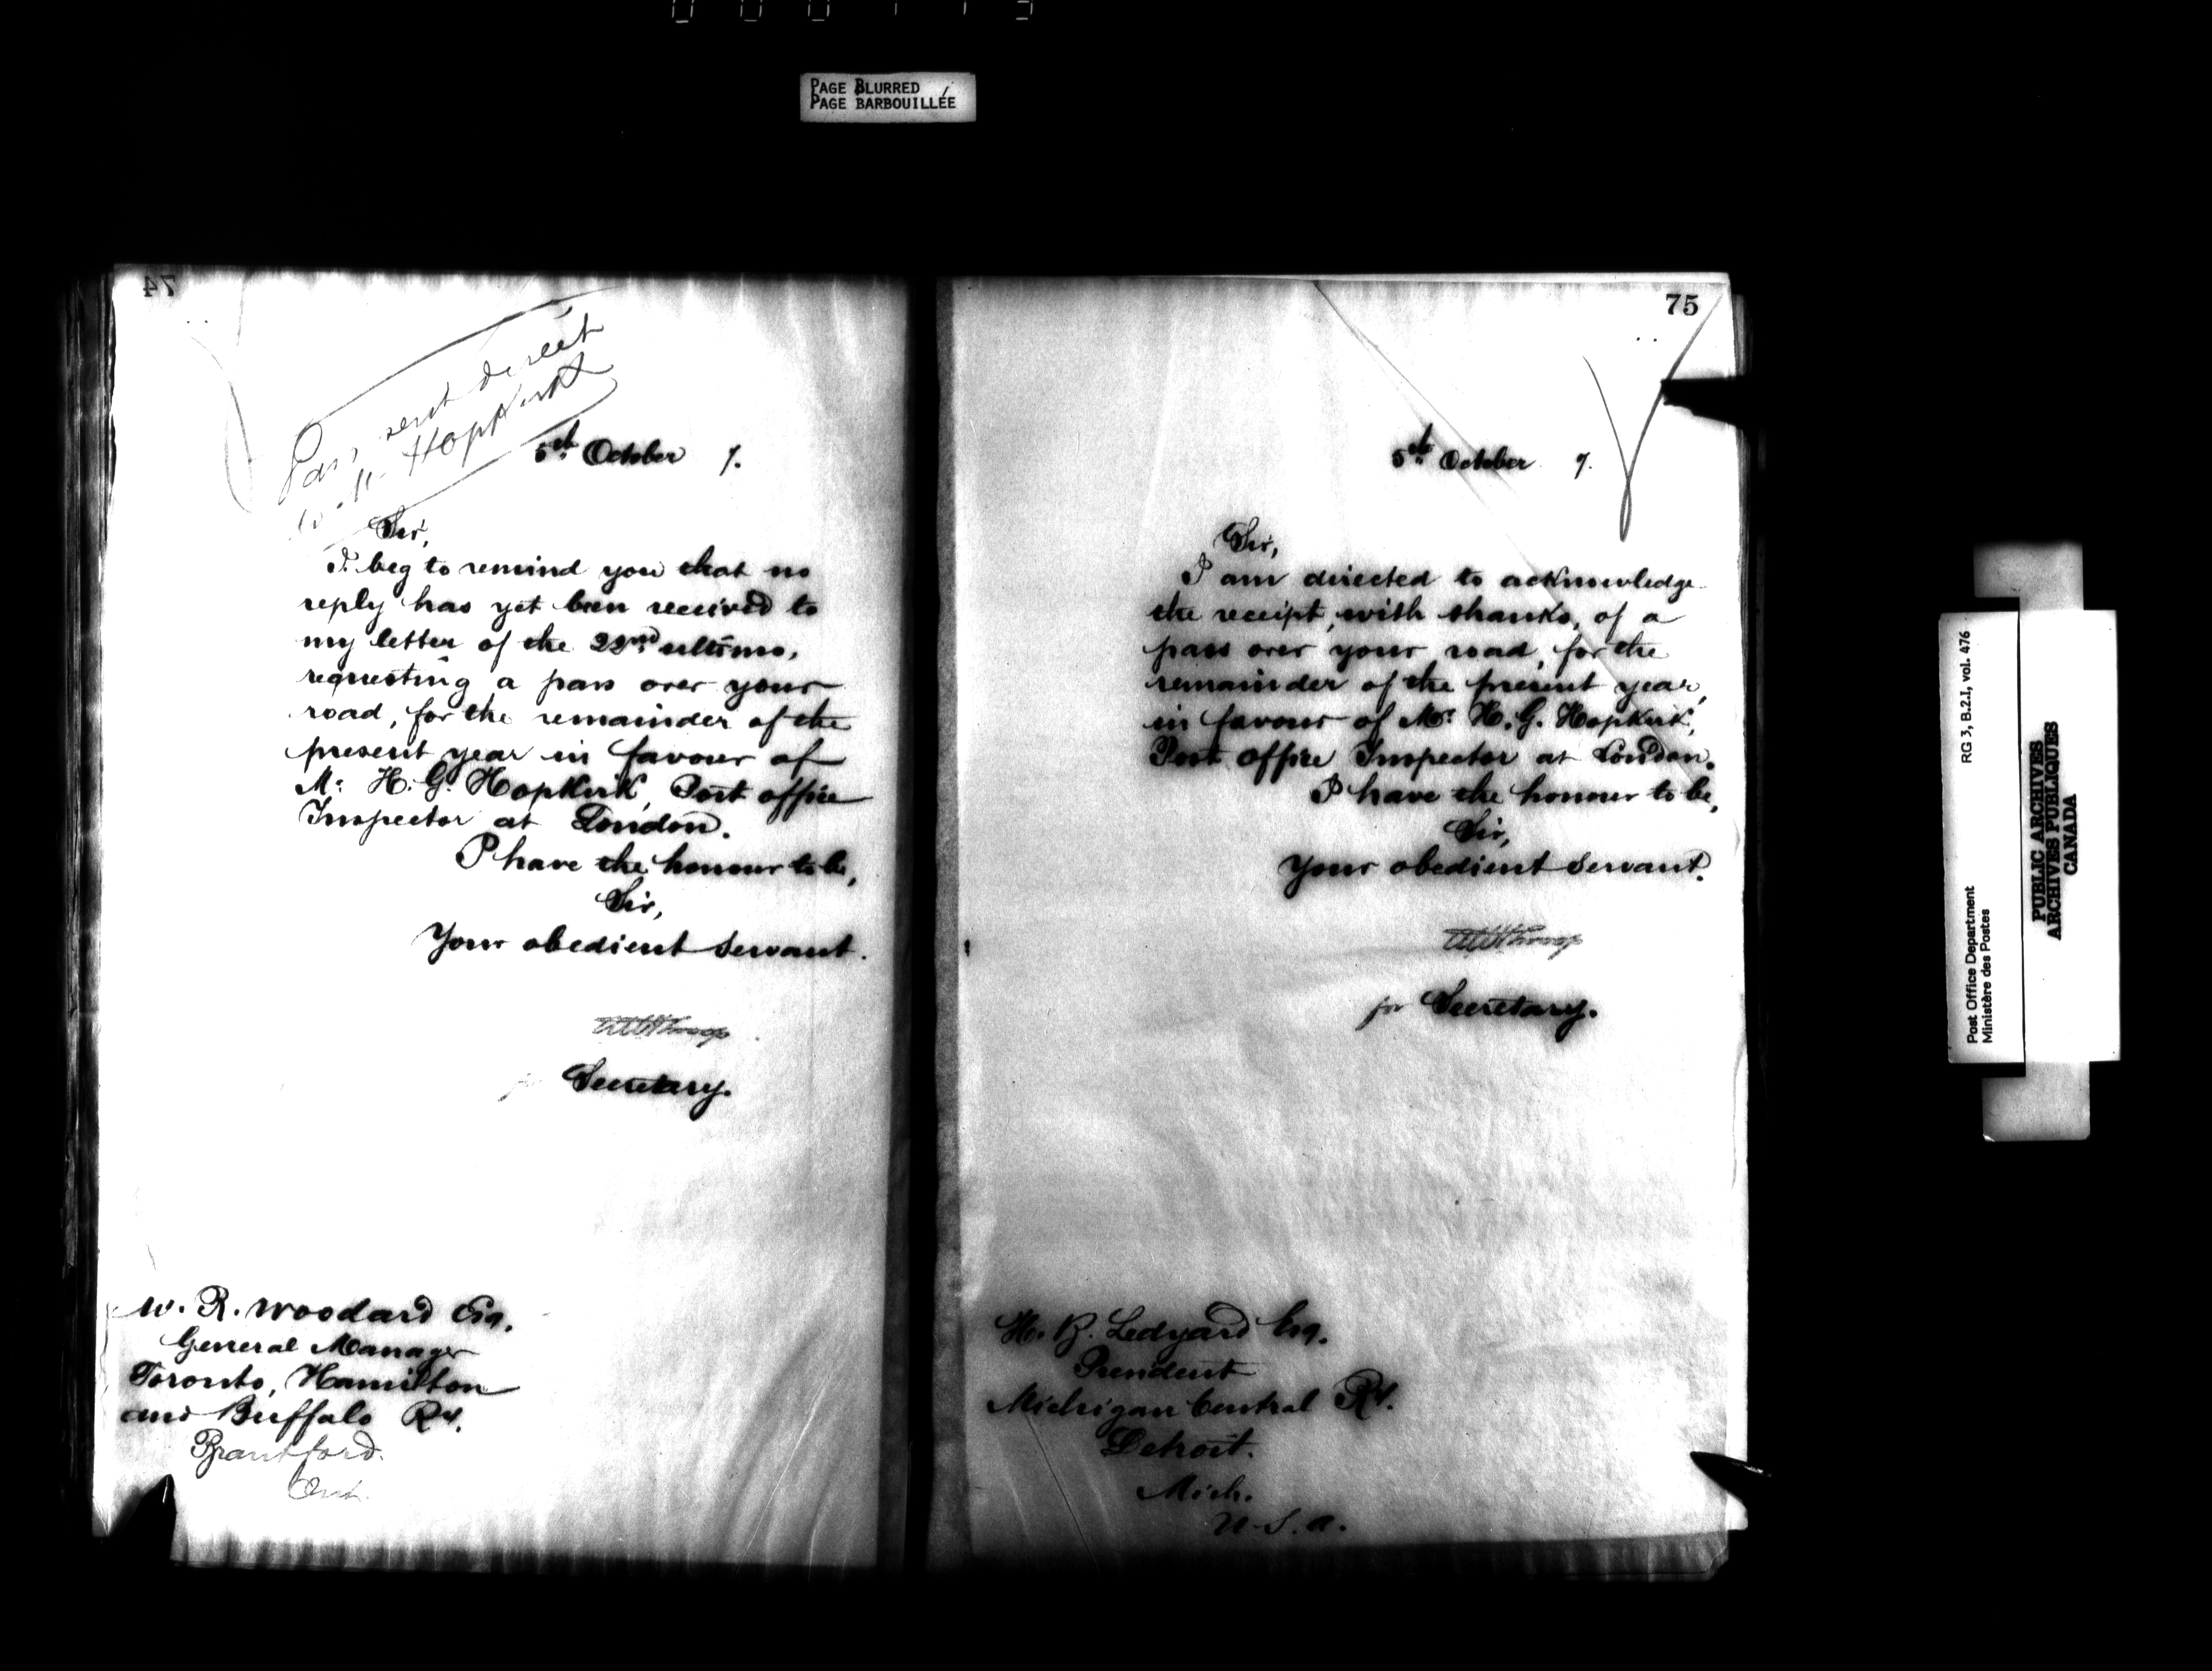 PAGE BLURRED
PAGE BARBOUILLÉE
74
Pass sent direct
to Mr Hopkirk
5th October 7.
Sir,
I beg to remind you that no
reply has yet been received to
my letter of the 22nd ultimo,
requesting a pass over your
road, for the remainder of the
present year in favour of
Mr. H. G. Hopkirk, Post office
Inspector at London.
I have the honour to be,
Sir,
Your obedient servant.
for Secretary.
W. R. Woodard Esq.
General Manager
Toronto, Hamilton
and Buffalo Ry.
Brantford.
Ont.
75
5th October 7.
Sir,
I am directed to acknowledge
the receipt, with thanks, of a
pass over your road, for the
remainder of the present year,
in favour of Mr. H. G. Hopkirk,
Post Office Inspector at London.
I have the honour to be,
Sir,
Your obedient servant.
for Secretary.
H. B. Ledyard Esq.
President
Michigan Central Ry.
Detroit.
Mich.
U.S.A.
RG 3, B.2.1, vol. 476
Post Office Department
Ministère des Postes
PUBLIC ARCHIVES
ARCHIVES PUBLIQUES
CANADA